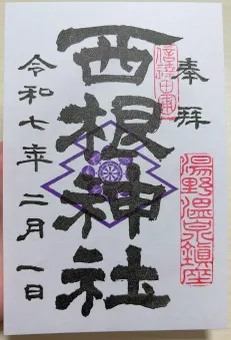 奉拝
信達中軍
湯野温泉鎮座
西根神社
令和七年二月一日